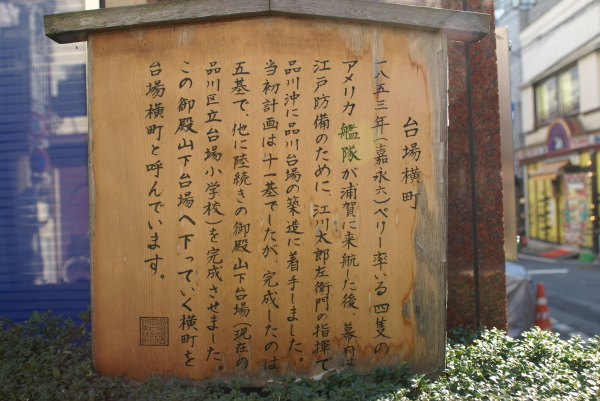 台場横町
一八五三年(嘉永六)ペリー率いる四隻の
アメリカ艦隊が浦賀に来航した後、幕府は
江戸防備のために、江川太郎左衛門の指揮で
品川沖に品川台場の築造に着手しました。
当初計画は十一基でしたが、完成したのは
五基で、他に陸続きの御殿山下台場(現在の
品川区立台場小学校)を完成させました。
この御殿山下台場へ下っていく横町を
台場横町と呼んでいます。